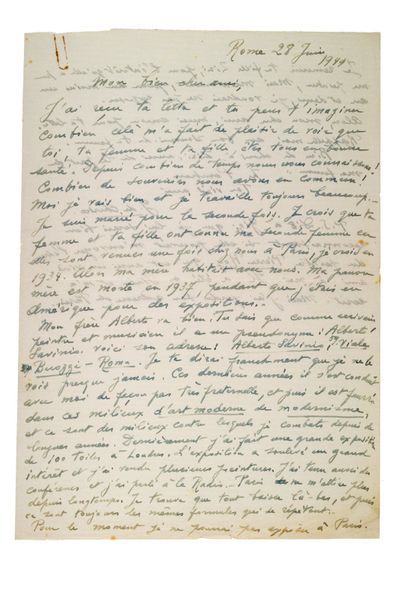 Rome 28 Juin
1949
Mon bien cher ami,
J'ai reçu ta lettre et tu peux t'imaginer
combien cela m'a fait de plaisir de voir que
toi, ta femme et ta fille, êtes tous en bonne
santé. Depuis combien de temps nous nous connaissons!
Combien de souvenirs nous avons en commun!
Moi, je vais bien et je travaille toujours beaucoup.
Je suis marié pour la seconde fois. Je crois que ta
femme et ta fille ont connu ma seconde femme car
elles sont venues une fois chez nous à Paris, je crois en
1934. Alors ma mère habitait avec nous. Ma pauvre
mère est morte en 1937 pendant que j'étais en
Amérique pour des expositions.
Mon frère Alberto va bien. Tu sais que comme écrivain
peintre et musicien il a un pseudonyme: Alberto
Savinio. Voici son adresse: Alberto Savinio, Viale
Buozzi - Roma. Je te dirai franchement que je ne le
vois presque jamais. Ces dernières années il s'est conduit
avec moi de façon pas très fraternelle, et puis il est fourré
dans ces milieux d'art moderne de modernisme,
et ce sont des milieux contre lesquels je combats depuis de
longues années. Dernièrement j'ai fait une grande exposition
de 100 toiles à Londres. L'exposition a soulevé un grand
intérêt et j'ai vendu plusieurs peintures. J'ai tenu aussi des
conférences et j'ai parlé à la Radio. Paris ne m'attire plus
depuis longtemps. Je trouve que tout baisse là-bas, et puis
ce sont toujours les mêmes formules qui se répètent.
Pour le moment je ne pourrai pas exposer à Paris.